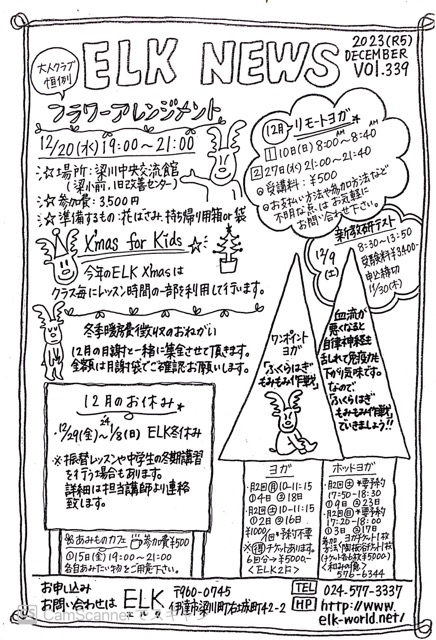 大人クラブ
恒例
ELK NEWS
2023(R5)
DECEMBER
VOl.339
フラワーアレンジメント
12/20(水)19:00~21:00
☆場所:梁川中央交流館
(梁小前、旧改善センター)
☆参加費:3,500円
☆準備するもの:花はさみ、持ち帰り用箱or袋
12月 リモートヨガ
1 10日(日)8:00AM~8:40AM
2 27日(水)21:00~21:40
◎受講料:¥500
◎お支払い方法や参加方法など
不明な点は、お気軽に
お問い合わせ下さい。
X'mas for Kids
今年のELK Xmasは
クラス毎にレッスン時間の一部を利用して行います。
新教研テスト
12/9(土)
8:30~13:50
申込締切
11/30(木)
冬季暖房費徴収のおねがい
12月の月謝と一緒に集金させて頂きます。
金額は月謝袋でご確認お願いします。
ワンポイント
ヨガ
「ふくらはぎ
もみもみ作戦」
血流が
悪くなると
自律神経も
乱れて免疫力も
下がり気味です。
なので
「ふくらはぎ
もみもみ作戦」
でいきましょう!!
12月のお休み
12/29(金)~24 1/8(日) ELK冬休み
※振替レッスンや中学生の冬期講習
を行う場合もあります。
詳細は担当講師より連絡
致します。
ヨガ
・月2回(月)10-11:15
①4日②18日
・月2回(土)10-11:15
①2日②16日
¥1000/1回*予約不要
※(得)チケットあります。
6回分→¥5000-
<ELK2F>
ホットヨガ
・月2回(土)*要予約
17:50-18:30
①9日②23日
・月2回(日)*要予約
17:20-18:00
①3日②17日
576-6344
編あみものカフェ 参加費¥500
①15日(金)19:00~21:00
各自あみたい物をご用意下さい。
お申し込み
お問い合わせは
ELK
エルク
〒960-0745
伊達市梁川町右城町42-2
TEL 024-577-3337
HP http://www.
elk-world.net/
CamScanner